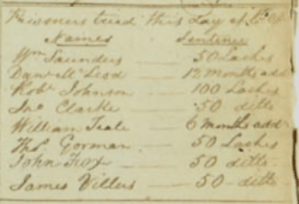 Prisoners tried this Day at
Names Sentence
Wm Saunders — 50 Lashes
Danell Lead — 12 months add
Robt Johnson — 100 Lashes
Jno Clarke — 50 ditto
William Teale — 6 months add
Thos Gorman — 50 Lashes
John Fox — 50 ditto
James Villers — 50 ditto